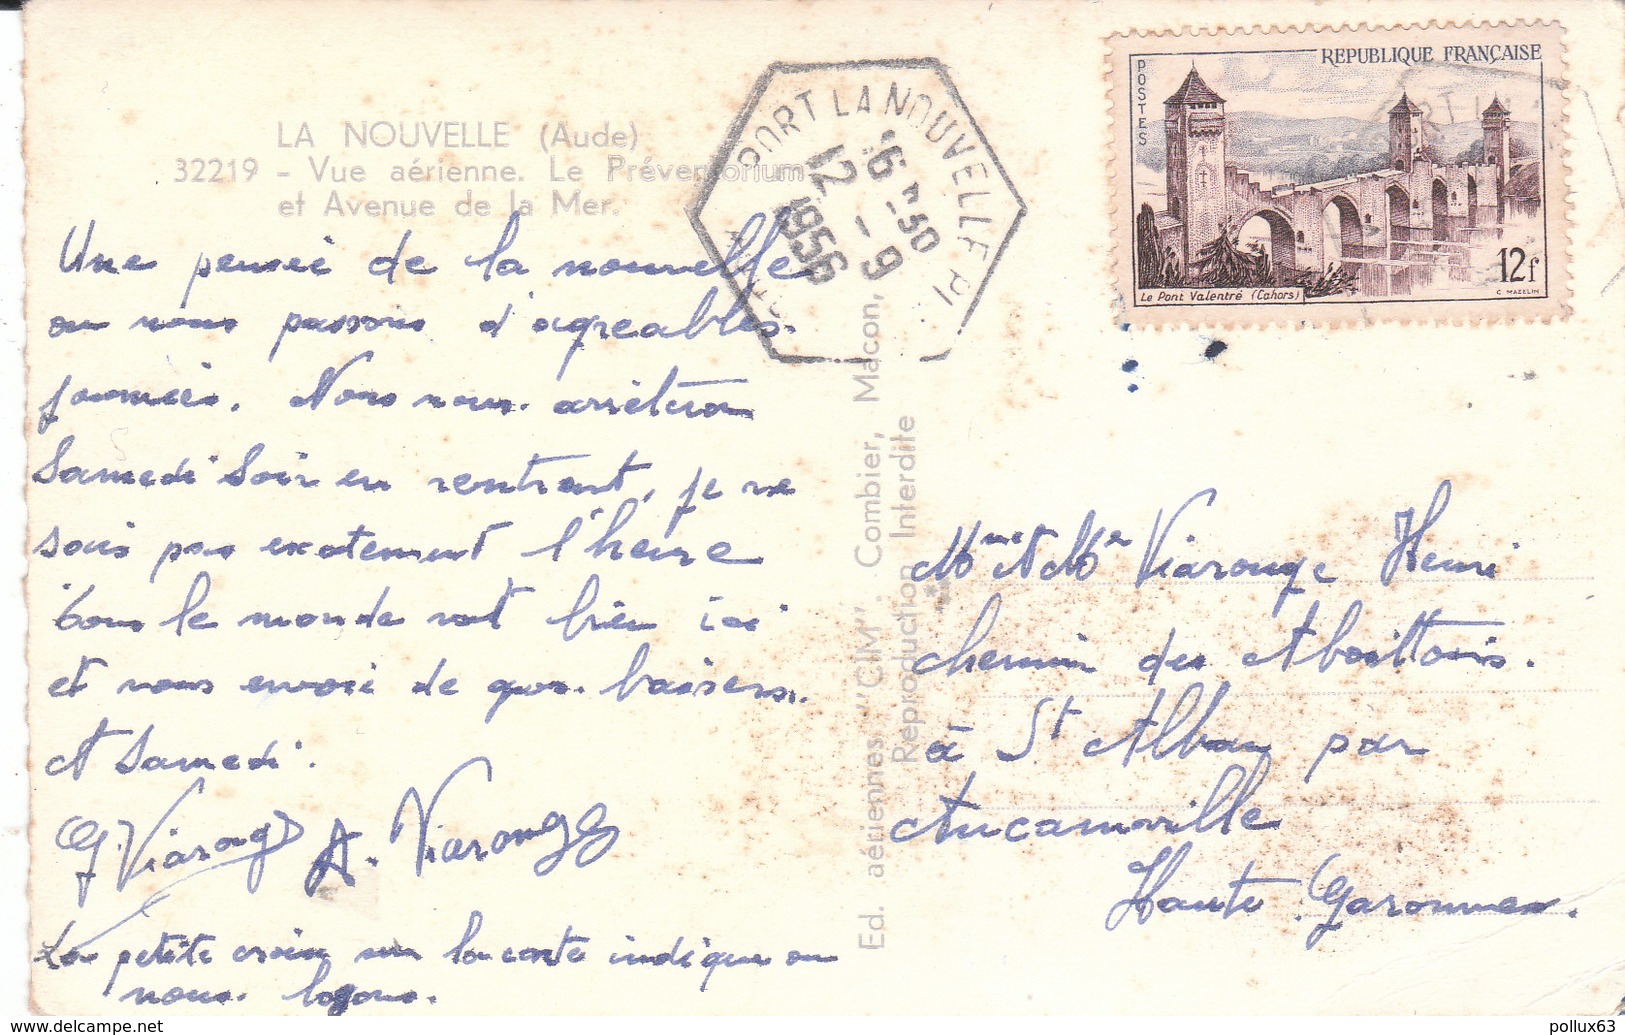 LA NOUVELLE (Aude)
32219 - Vue aérienne. Le Préventorium
et Avenue de la Mer.
Une pensée de la nouvelle
ou nous passons d'agreables
journées. Nous nous arrêteron
Samedi Soir en rentrant, je ne
sais pas exatement l'heure
Tous le monde vat bien ici
et nous envoie de gros baisers.
A Samedi.
G. Viarouge A. Viarouge
La petite croix sur la carte indique ou
nous logons.
PORT LA NOUVELLE PL
16 H 30
12 - 9
1956
REPUBLIQUE FRANÇAISE
POSTES
12f
Le Pont Valentré (Cahors)
C. MAZELIN
Ed. aériennes "CIM". Combier, Macon,
Reproduction Interdite
Mme et Mr Viarouge Henri
chemin des
à St Alban par
Aucamville
Haute Garonne.
www.delcampe.net
pollux63